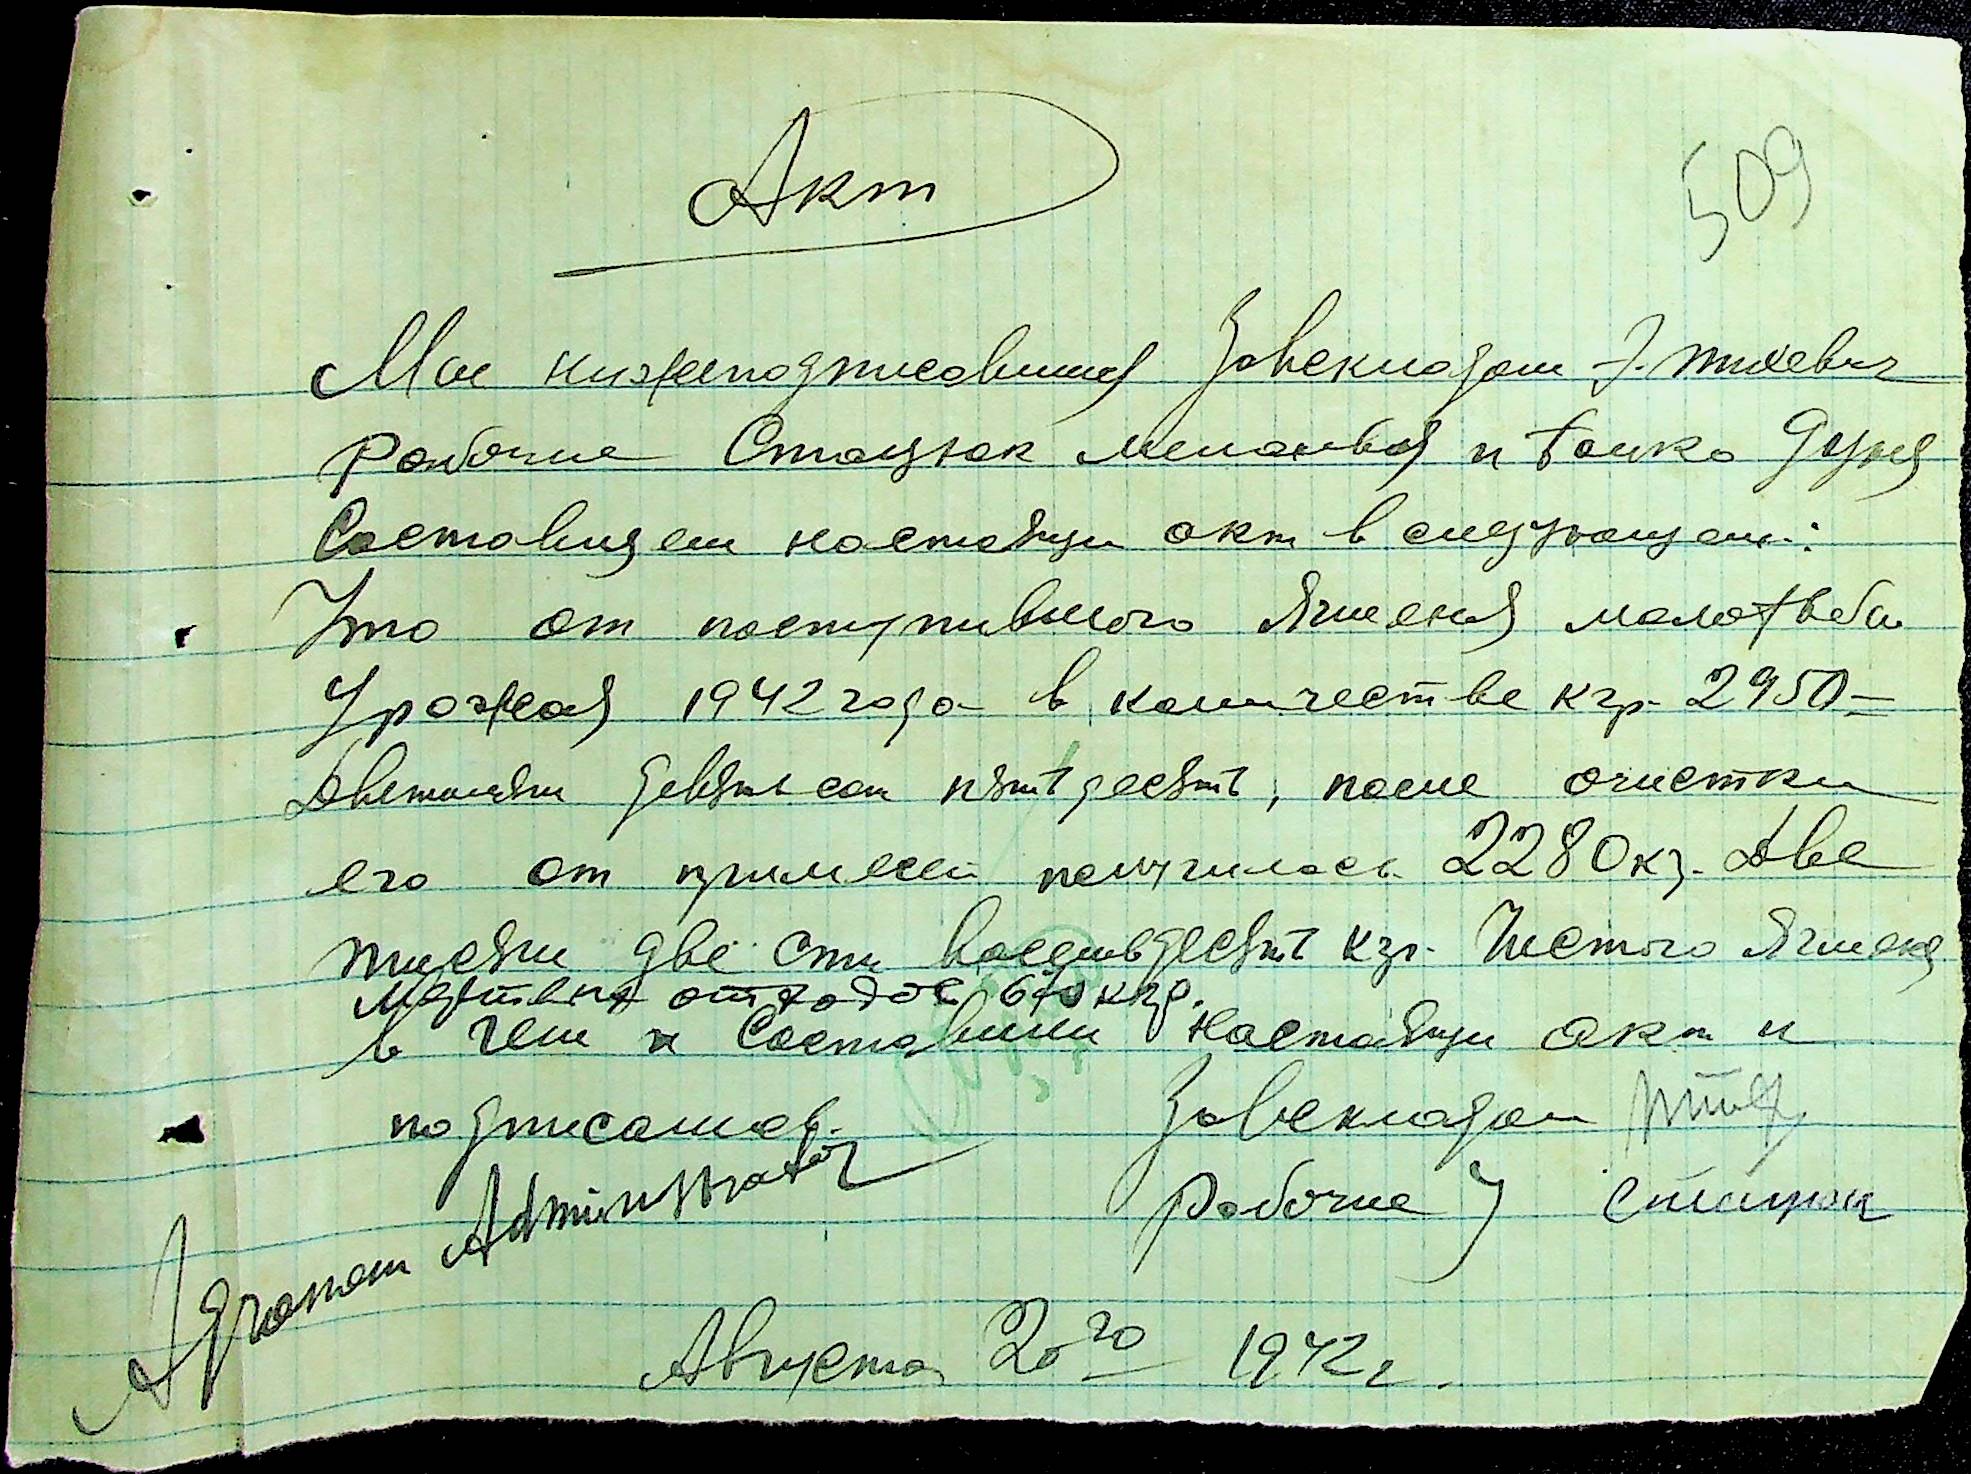 Акт
509
Мы нижеподписавшися Завскладом
Рабочие Стацюк Меланья и Бойко Дуня
Составляем настоящи акт в следующем:
Что от поступившого Ячменя малотьбы
Урожая 1942 года в количестве кгр. 2950=
Дветысячи девятьсот пятьдесят, после очистки
его от примесей получилось 2280 кг. Две
тысячи две сти восемьдесят кгр. Чистого Ячменя
отходов 670 кгр.
в чем и Составили настоящи акт и
подписались.
Завскладом
Agronom Administrator
Рабочие Стацюк
Августа 20го 1942 г.